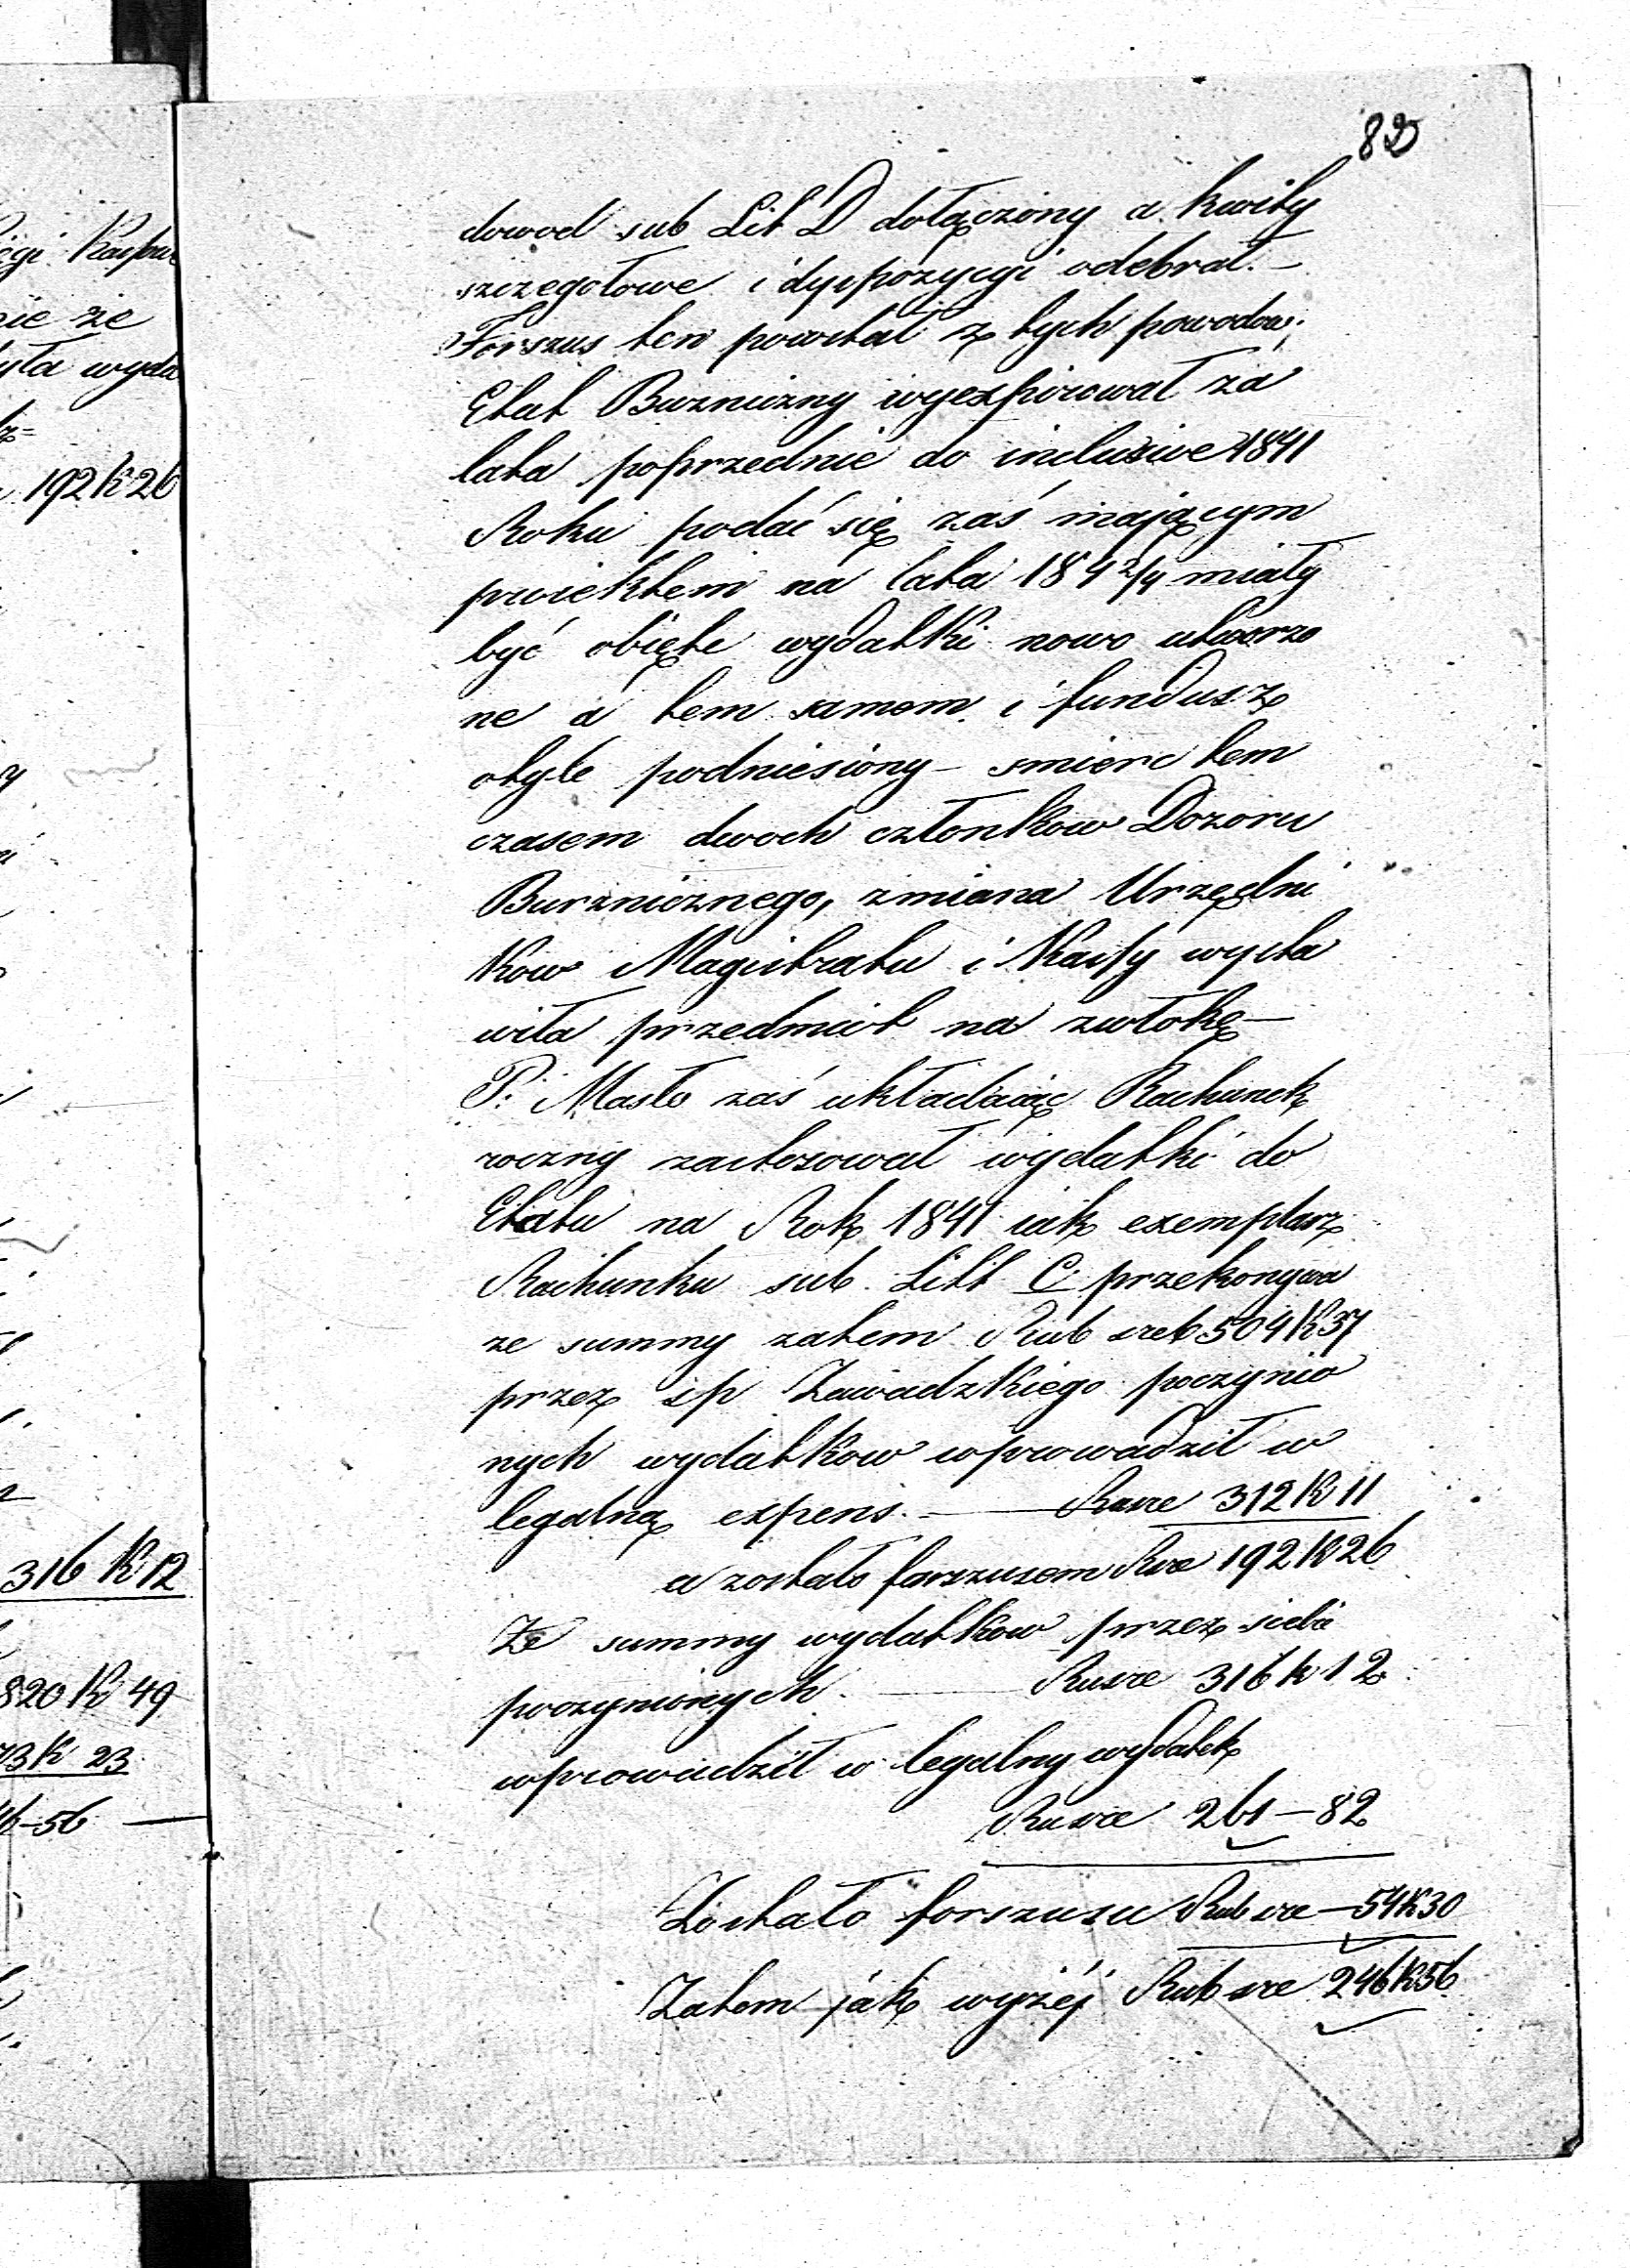 82
dowod sub Lit D dołączony a kwity
szczegołowe i dyspozycyi odebrał. –
Forszus ten powstał z tych powodow;
Etat Buzniczny wyexpirował za
lata poprzednie do inclusive 1841
Roku podać się zaś mającym
proiektem na lata 184 2/4 miały
być obięte wydatki nowo utworzo
ne a tem samem i fundusz
otyle podniesiony – smierc tem
czasem dwoch członkow Dozoru
Burznicznego, zmiana Urzędni
kow Magistratu i Kassy wysta
wiła przedmiot na zwłokę –
P: Masło zaś układaiąc Rachunek
roczny zastosował wydatki do
Etatu na Rok 1841 iak exemplarz
Rachunku sub. Litt C. przekonywa
ze summy zatem Rub sreb 504 K 37
przez sp Zawadzkiego poczynio
nych wydatkow wprowadził w
legalną expens. — Rusre 312 K 11
a zostało forszusem Rsre 192 K 26
Ze summy wydatkow przez siebie
poczynionych. — Rusre 316 k 12
wprowadził w legalny wydatek
Rusre 261 – 82
Zostało forszusu Rub sre – 54 K 30
Zatem jak wyżéj Rub sre 246 K 56
ie że
yła wyda
192 K 26
316 K 12
820 K 49
73 K 23
46 – 56 —